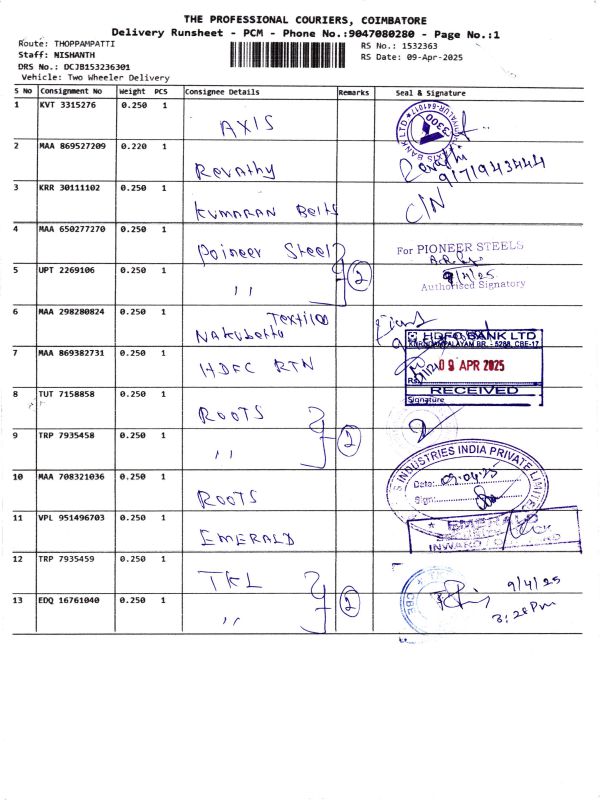 THE PROFESSIONAL COURIERS, COIMBATORE
Delivery Runsheet - PCM - Phone No.:9047080280 - Page No.:1
Route: THOPPAMPATTI
Staff: NISHANTH
DRS No.: DCJB153236301
Vehicle: Two Wheeler Delivery
RS No.: 1532363
RS Date: 09-Apr-2025
S No Consignment No Weight PCS Consignee Details Remarks Seal & Signature
1 KVT 3315276 0.250 1 AXIS
AXIS BANK LTD
3300
2 MAA 869527209 0.220 1 Revathy Revathi
9171943444
3 KRR 30111102 0.250 1 KUMARAN Belts C/N
4 MAA 650277270 0.250 1 Poineer Steel For PIONEER STEELS
5 UPT 2269106 0.250 1 " 2 9/4/25
Authorised Signatory
6 MAA 298280824 0.250 1 Textiles
7 MAA 869382731 0.250 1 HDFC RTN HDFC BANK LTD
09 APR 2025
RECEIVED
Signature
8 TUT 7158858 0.250 1 ROOTS
9 TRP 7935458 0.250 1 " 2
10 MAA 708321036 0.250 1 ROOTS INDUSTRIES INDIA PRIVATE LIMITED
Date: 09.04.25
Sign:
11 VPL 951496703 0.250 1 EMERALD EMERALD
INWARD
12 TRP 7935459 0.250 1 TKL 9/4/25
13 EDQ 16761040 0.250 1 " 2 3:28 Pm
CBE